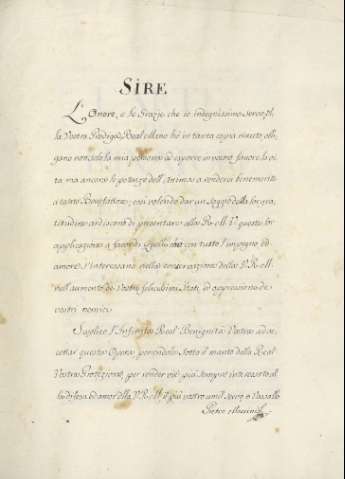 SIRE
L'Onore, e le Grazie, che io indegnissimo servo di
la Vostra Prodiga Real Mano hò in tanta copia ricevuto, obli,
gano non solo la mia persona ad esporre in vostro favore la vi,
ta ma ancora le potenze dell'Animo a rendersi benemerito
a tanto Benefattore; così volendo dar un saggio della sua gra,
titudine ardisco di presentare alla R. M. V. questa
applicazione a favore di quelli, che con tutto l'impegno ed
amore, s'interessano nella conservazione della V. R. M.
nell'aumento de Vostri felicissimi Stati, ed oppressione de
vostri nemici.
Supplico l'Infinita Real Benignità Vostra ad ac,
cettar questa Opera ponendola sotto il manto della Real
Vostra Protezione, per render vie più sempre interessato al
la difesa ed amor della V. R. M. il più vostro umil servo e Vassallo
Pietro